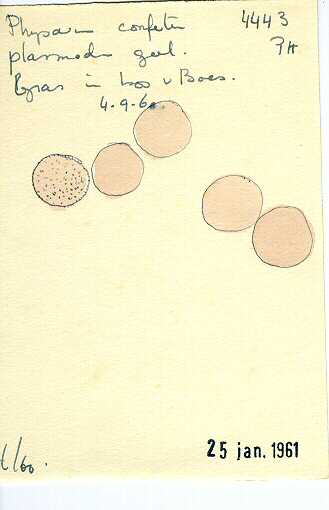 Physarum confertum 4443
plasmodi geel. PH
Gras in bos v Boes.
4.9.60.
/60.
25 jan. 1961